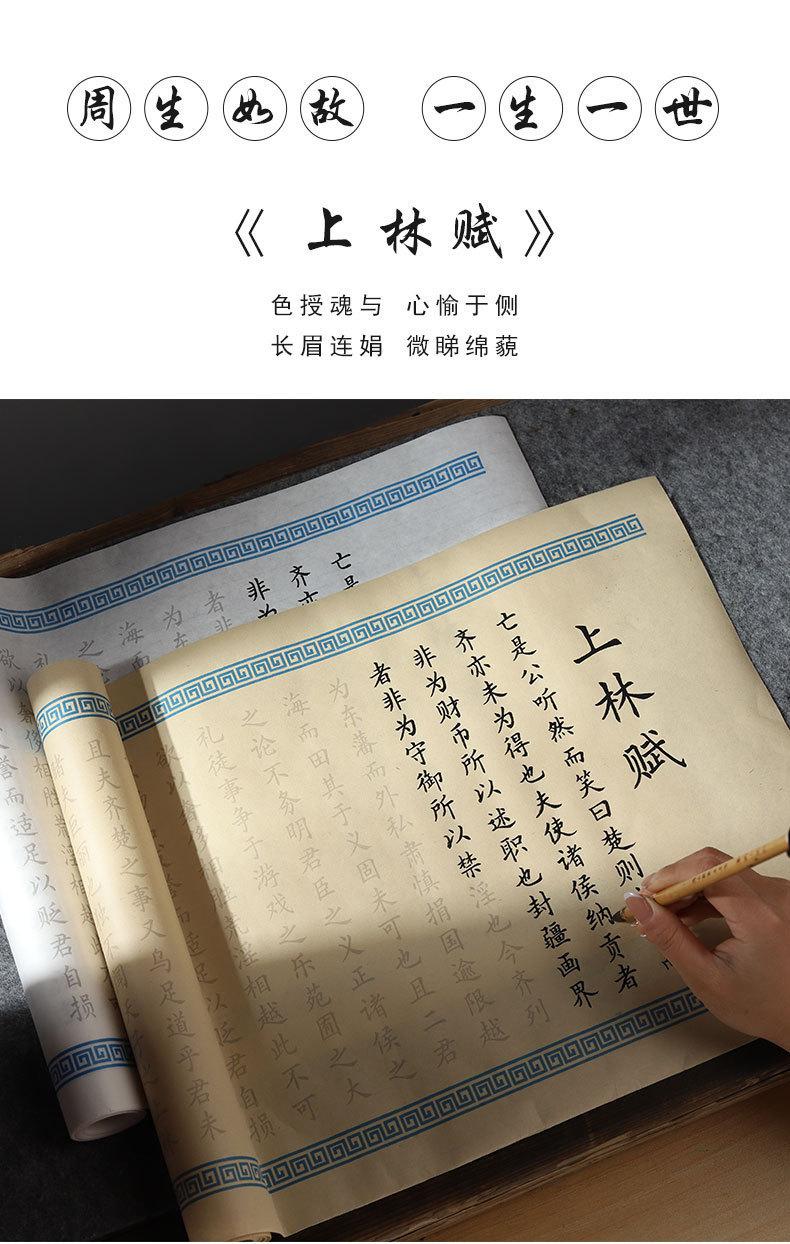 周生如故 一生一世
《上林赋》
色授魂与 心愉于侧
长眉连娟 微睇绵藐
上林赋
亡是公听然而笑曰楚则
齐亦未为得也夫使诸侯纳贡者
非为财币所以述职也封疆画界
者非为守御所以禁淫也今齐列
为东藩而外私肃慎捐国逾限越
海而田其于义固未可也且二君
之论不务明君臣之义正诸侯之
礼徒事争于游戏之乐苑囿之大
欲以奢侈相胜荒淫相越此不可
而适足以贬君自损
且夫齐楚之事又乌足道乎君未
亡是
齐亦
非为
者非
为东
海而
之论
礼
欲以奢侈相胜荒淫
誉而适足以贬君自损